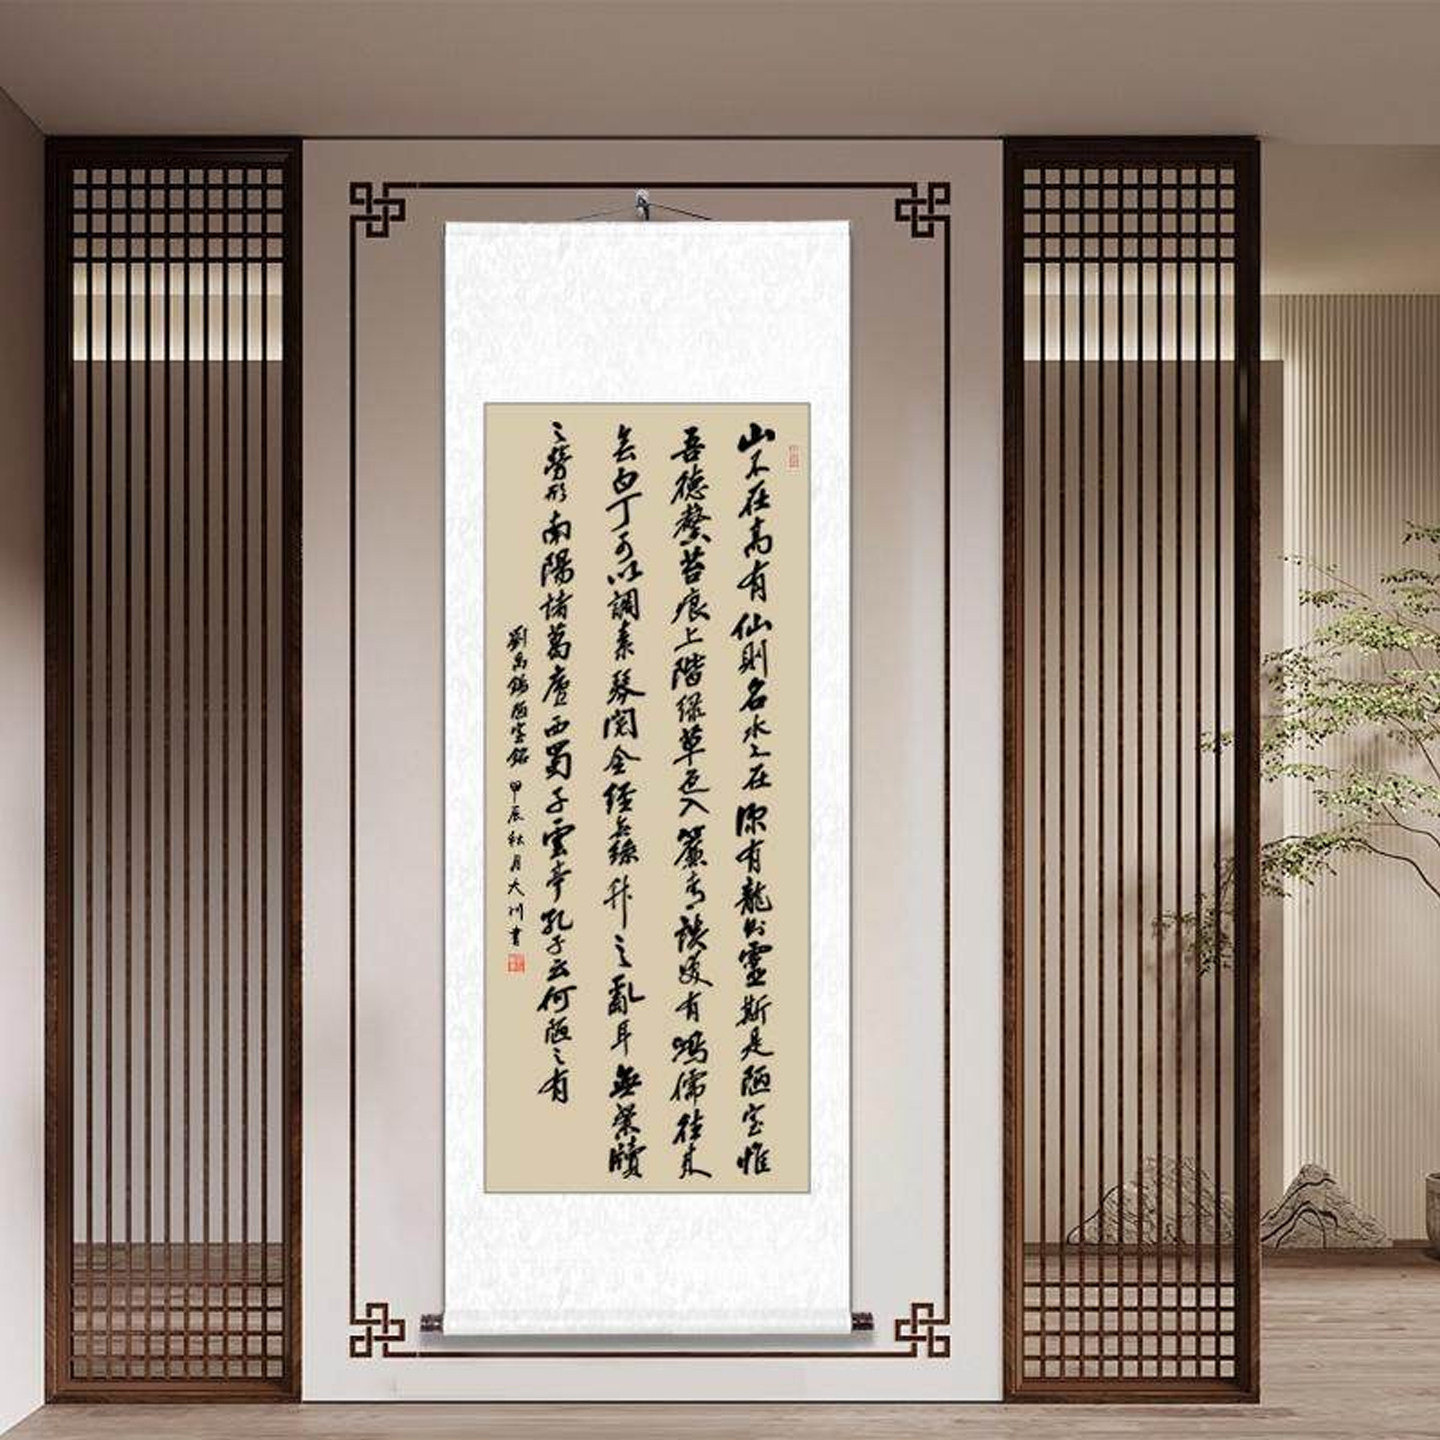 山不在高有仙則名水不在深有龍則靈斯是陋室惟
吾德馨苔痕上階緑草色入簾青談笑有鴻儒往来
無白丁可以調素琴閱金經無絲竹之亂耳無案牘
之勞形南陽諸葛廬西蜀子雲亭孔子云何陋之有
劉禹錫陋室銘 甲辰秋月大川書